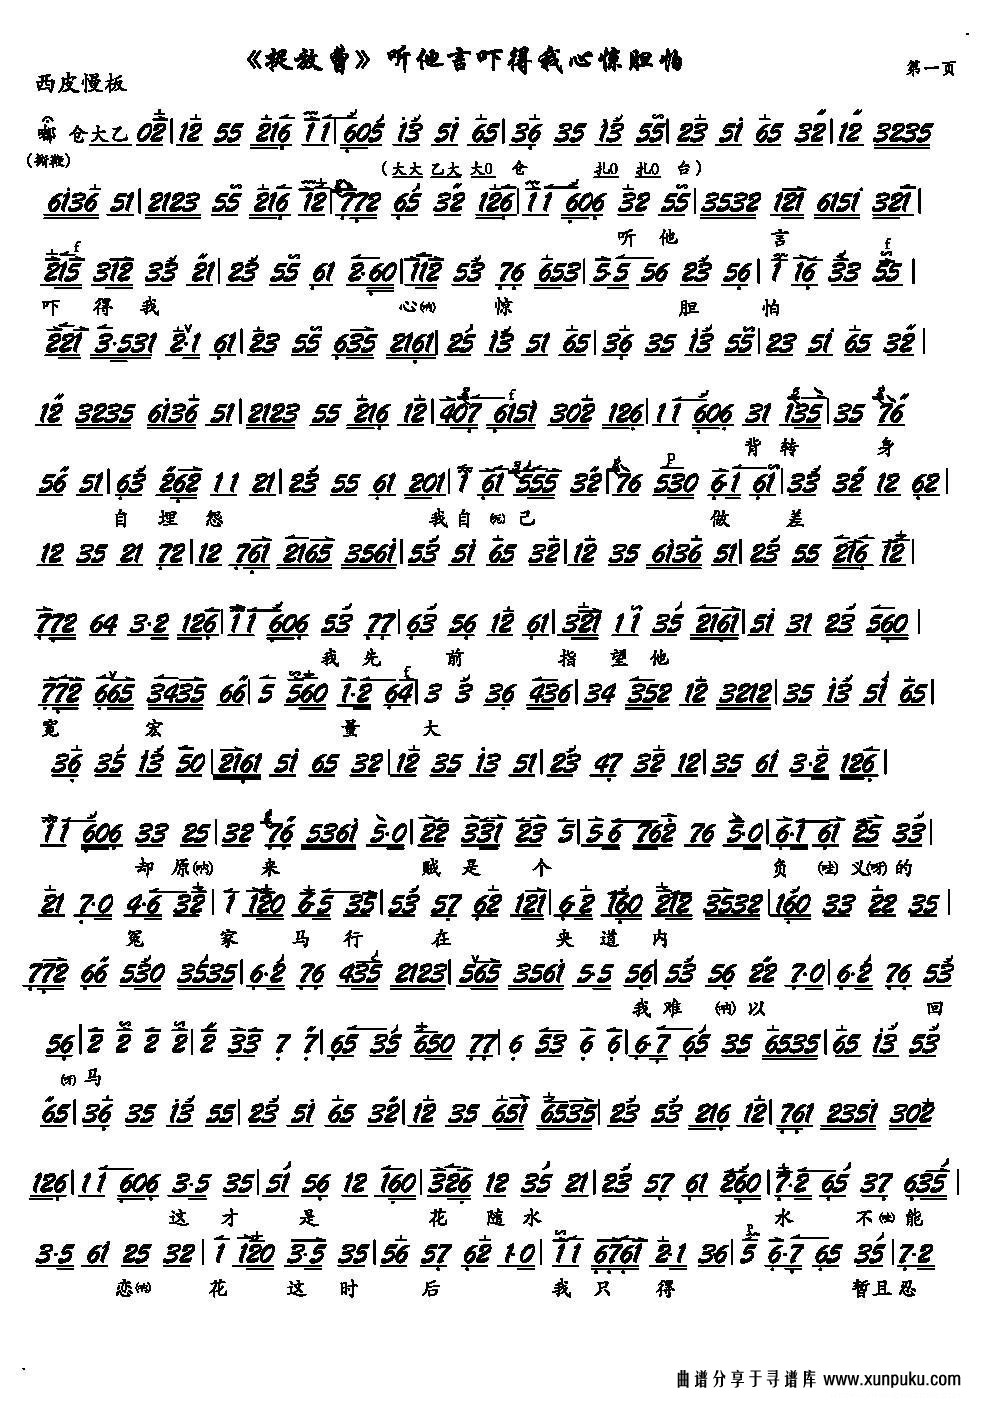 《捉放曹》听他言吓得我心惊胆怕
第一页
西皮慢板
嘟 仓大乙 02|12 55 216 11|605 13 51 65|36 35 13 55|23 51 65 32|12 3235
(撕鞭)
(大大 乙大 大0 仓 扎0 扎0 台)
6136 51|2123 55 216 12|772 65 32 126|11 606 32 55|3532 121 6151 321|
听他 言
215 312 33 21|23 55 61 2·60|112 53 76 653|5·5 56 23 56|1 16 33 55|
吓得我 心(呐) 惊 胆 怕
221 3·531 2·1 61|23 55 635 2161|25 13 51 65|36 35 13 55|23 51 65 32|
12 3235 6136 51|2123 55 216 12|407 6151 302 126|11 606 31 135|35 76
背转 身
56 51|63 262 11 21|23 55 61 201|1 61 555 32|76 530 6·1 61|33 32 12 62|
自埋怨 我自 己 做 差
12 35 21 72|12 761 2165 3561|53 51 65 32|12 35 6136 51|23 55 216 12|
772 64 3·2 126|11 606 53 77|63 56 12 61|321 11 35 2161|51 31 23 560|
我先 前 指望他
772 665 3435 66|5 560 1·2 64|3 3 36 436|34 352 12 3212|35 13 51 65|
宽 宏 量 大
36 35 13 50|2161 51 65 32|12 35 13 51|23 47 32 12|35 61 3·2 126|
11 606 33 25|32 76 5361 5·0|22 331 23 5|5·6 762 76 5·0|6·1 61 25 33|
却原(呐) 来 贼是 个 负(哇)义(呀)的
21 7·0 4·6 32|1 120 6·5 35|53 57 62 121|6·2 160 212 3532|160 33 22 35|
冤 家 马行 在 央道内
772 66 530 3535|6·2 76 435 2123|565 3561 5·5 56|53 56 22 7·0|6·2 76 53
我难(呐)以 回
56|2 2 2 2|2 33 7 7|65 35 650 77|6 53 6 6|6·7 65 35 6535|65 13 53
(呀)马
65|36 35 13 55|23 51 65 32|12 35 651 6535|23 53 216 12|761 2351 302
126|11 606 3·5 35|51 56 12 160|326 12 35 21|23 57 61 260|7·2 65 37 635|
这才 是 花 随水 水 不(哇)能
3·5 61 25 32|1 120 3·5 35|56 57 62 1·0|11 6761 2·1 36|5 6·7 65 35|7·2
恋(呐) 花 这时 后 我只 得 暂且忍
曲谱分享于寻谱库 www.xunpuku.com